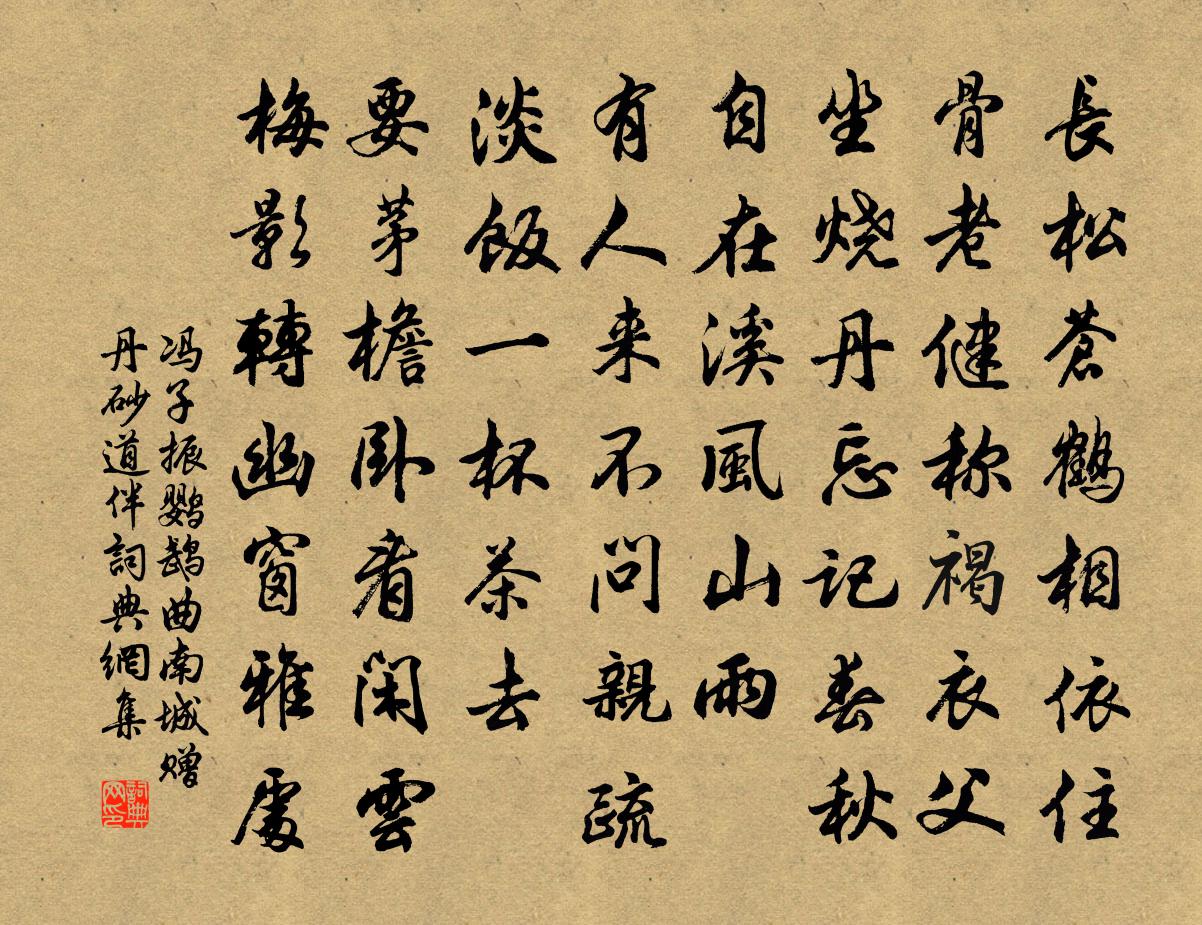 長松蒼鶴相依住
骨老健称褐衣父
坐烧丹忘记春秋
自在溪風山雨
有人来不问親疏
淡飯一杯茶去
要茅檐卧看闲雲
梅影轉幽窗雅處
冯子振鹦鹉曲南城赠
丹砂道伴詞典網集
詞典
网印